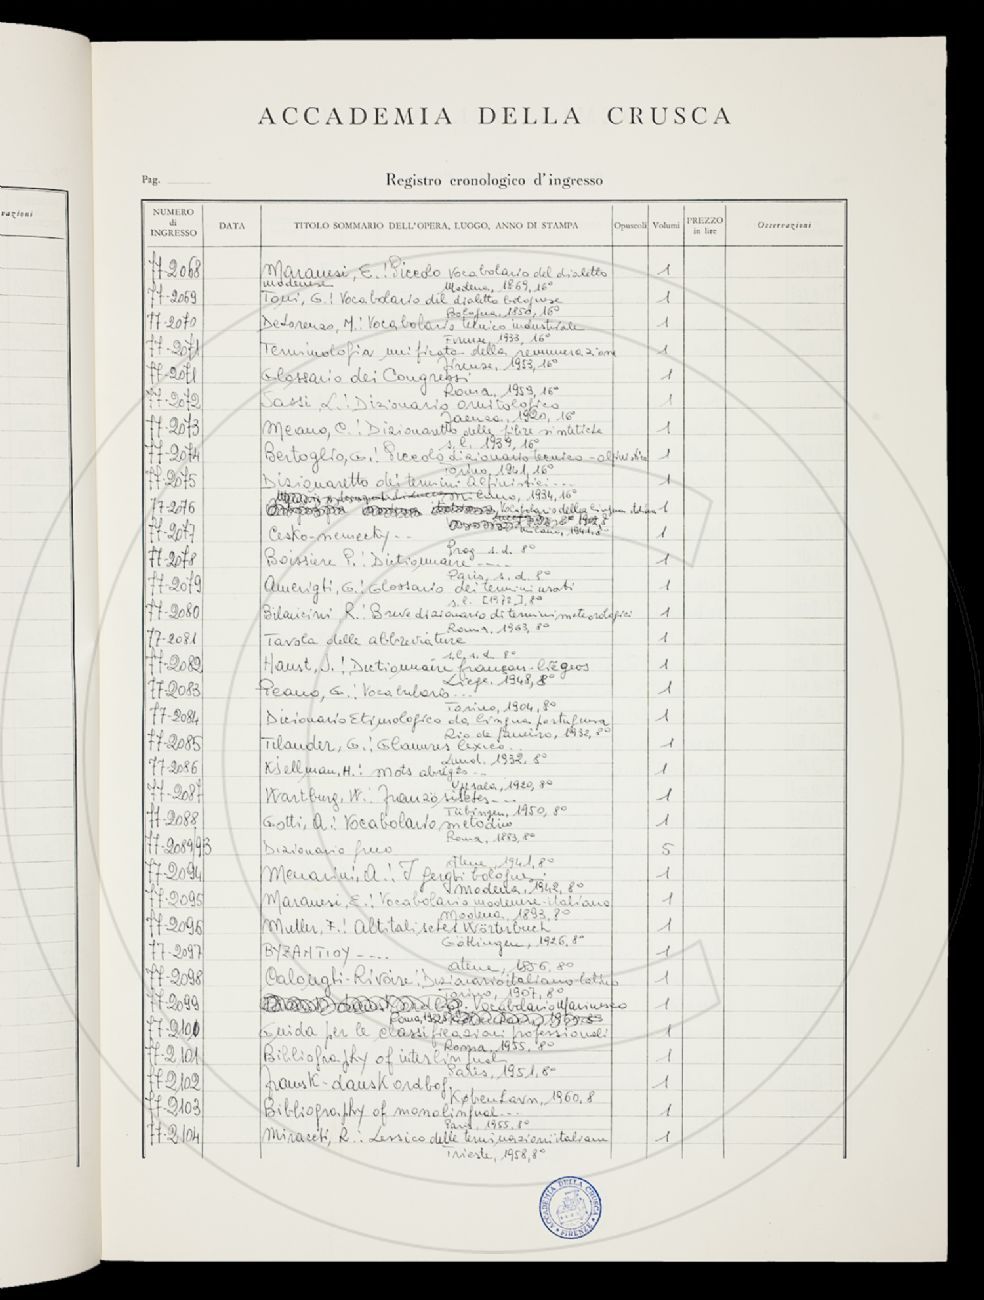 vazioni
ACCADEMIA DELLA CRUSCA
Pag.
Registro cronologico d'ingresso
NUMERO di INGRESSO DATA TITOLO SOMMARIO DELL'OPERA, LUOGO, ANNO DI STAMPA Opuscoli Volumi PREZZO in lire Osservazioni
77-2068 Maranesi, E.: Piccolo Vocabolario del dialetto 1
modenese Modena, 1869, 16°
77-2069 Toni, G.: Vocabolario del dialetto bolognese 1
Bologna, 1850, 16°
77-2070 De Lorenzo, M.: Vocabolario tecnico industriale 1
Firenze, 1933, 16°
77-2071 Terminologia unificata della remunerazione 1
Firenze, 1953, 16°
77-2071 Glossario dei Congressi 1
Roma, 1959, 16°
77-2072 Sassi, L.: Dizionario ornitologico 1
Faenza, 1920, 16°
77-2073 Meano, C.: Dizionaretto delle fibre sintetiche 1
s.l. 1939, 16°
77-2074 Bertoglio, G.: Piccolo dizionario tecnico-alpinistico 1
Torino, 1941, 16°
77-2075 Dizionaretto dei termini Alpinistici... 1
Milano, 1934, 16°
77-2076 Vocabolario della lingua italiana 1
Milano, 1941, 8°
77-2077 Cesko-nemecky... 1
Prag s.d. 8°
77-2078 Boissiere P.: Dictionnaire..... 1
Paris, s.d. 8°
77-2079 Amerigti, G.: Glossario dei termini usati 1
s.l. [1972], 8°
77-2080 Bilancini R.: Breve dizionario di termini meteorologici 1
Roma, 1963, 8°
77-2081 Tavola delle abbreviature 1
s.l. s.d. 8°
77-2082 Haust, J.: Dictionnaire français-liégeois 1
Liège, 1948, 8°
77-2083 Peano, G.: Vocabulario... 1
Torino, 1904, 8°
77-2084 Dicionario Etimologico da lingua portuguesa 1
Rio de Janeiro, 1932, 8°
77-2085 Tilander, G.: Glanures lexico... 1
Lund. 1932, 8°
77-2086 Kjellman, H.: Mots abrégés... 1
Uppsala, 1920, 8°
77-2087 Wartburg, W.: Französisches... 1
Tübingen, 1950, 8°
77-2088 Gotti, A.: Vocabolario metodico 1
Roma, 1883, 8°
77-2089/93 Dizionario greco 5
Atene, 1941, 8°
77-2094 Menarini, A.: I gerghi bolognesi 1
Modena, 1942, 8°
77-2095 Maranesi, E.: Vocabolario modenese-italiano 1
Modena, 1893, 8°
77-2096 Muller, F.: Altitalisches Wörterbuch 1
Göttingen, 1926, 8°
77-2097 ΒΥΖΑΝΤΙΟΥ.... 1
Atene, 1856, 8°
77-2098 Calonghi-Rivoire: Dizionario italiano-latino 1
Torino, 1907, 8°
77-2099 Vocabolario Marinesco 1
77-2100 Guida per le classificazioni professionali 1
Roma, 1955, 8°
77-2101 Bibliography of interlingual 1
Paris, 1951, 8°
77-2102 Fransk-dansk ordbog, 1
København, 1960, 8
77-2103 Bibliography of monolingual... 1
Paris, 1955, 8°
77-2104 R.: Lessico delle terminazioni italiane 1
Trieste, 1958, 8°
ACCADEMIA DELLA CRUSCA
FIRENZE